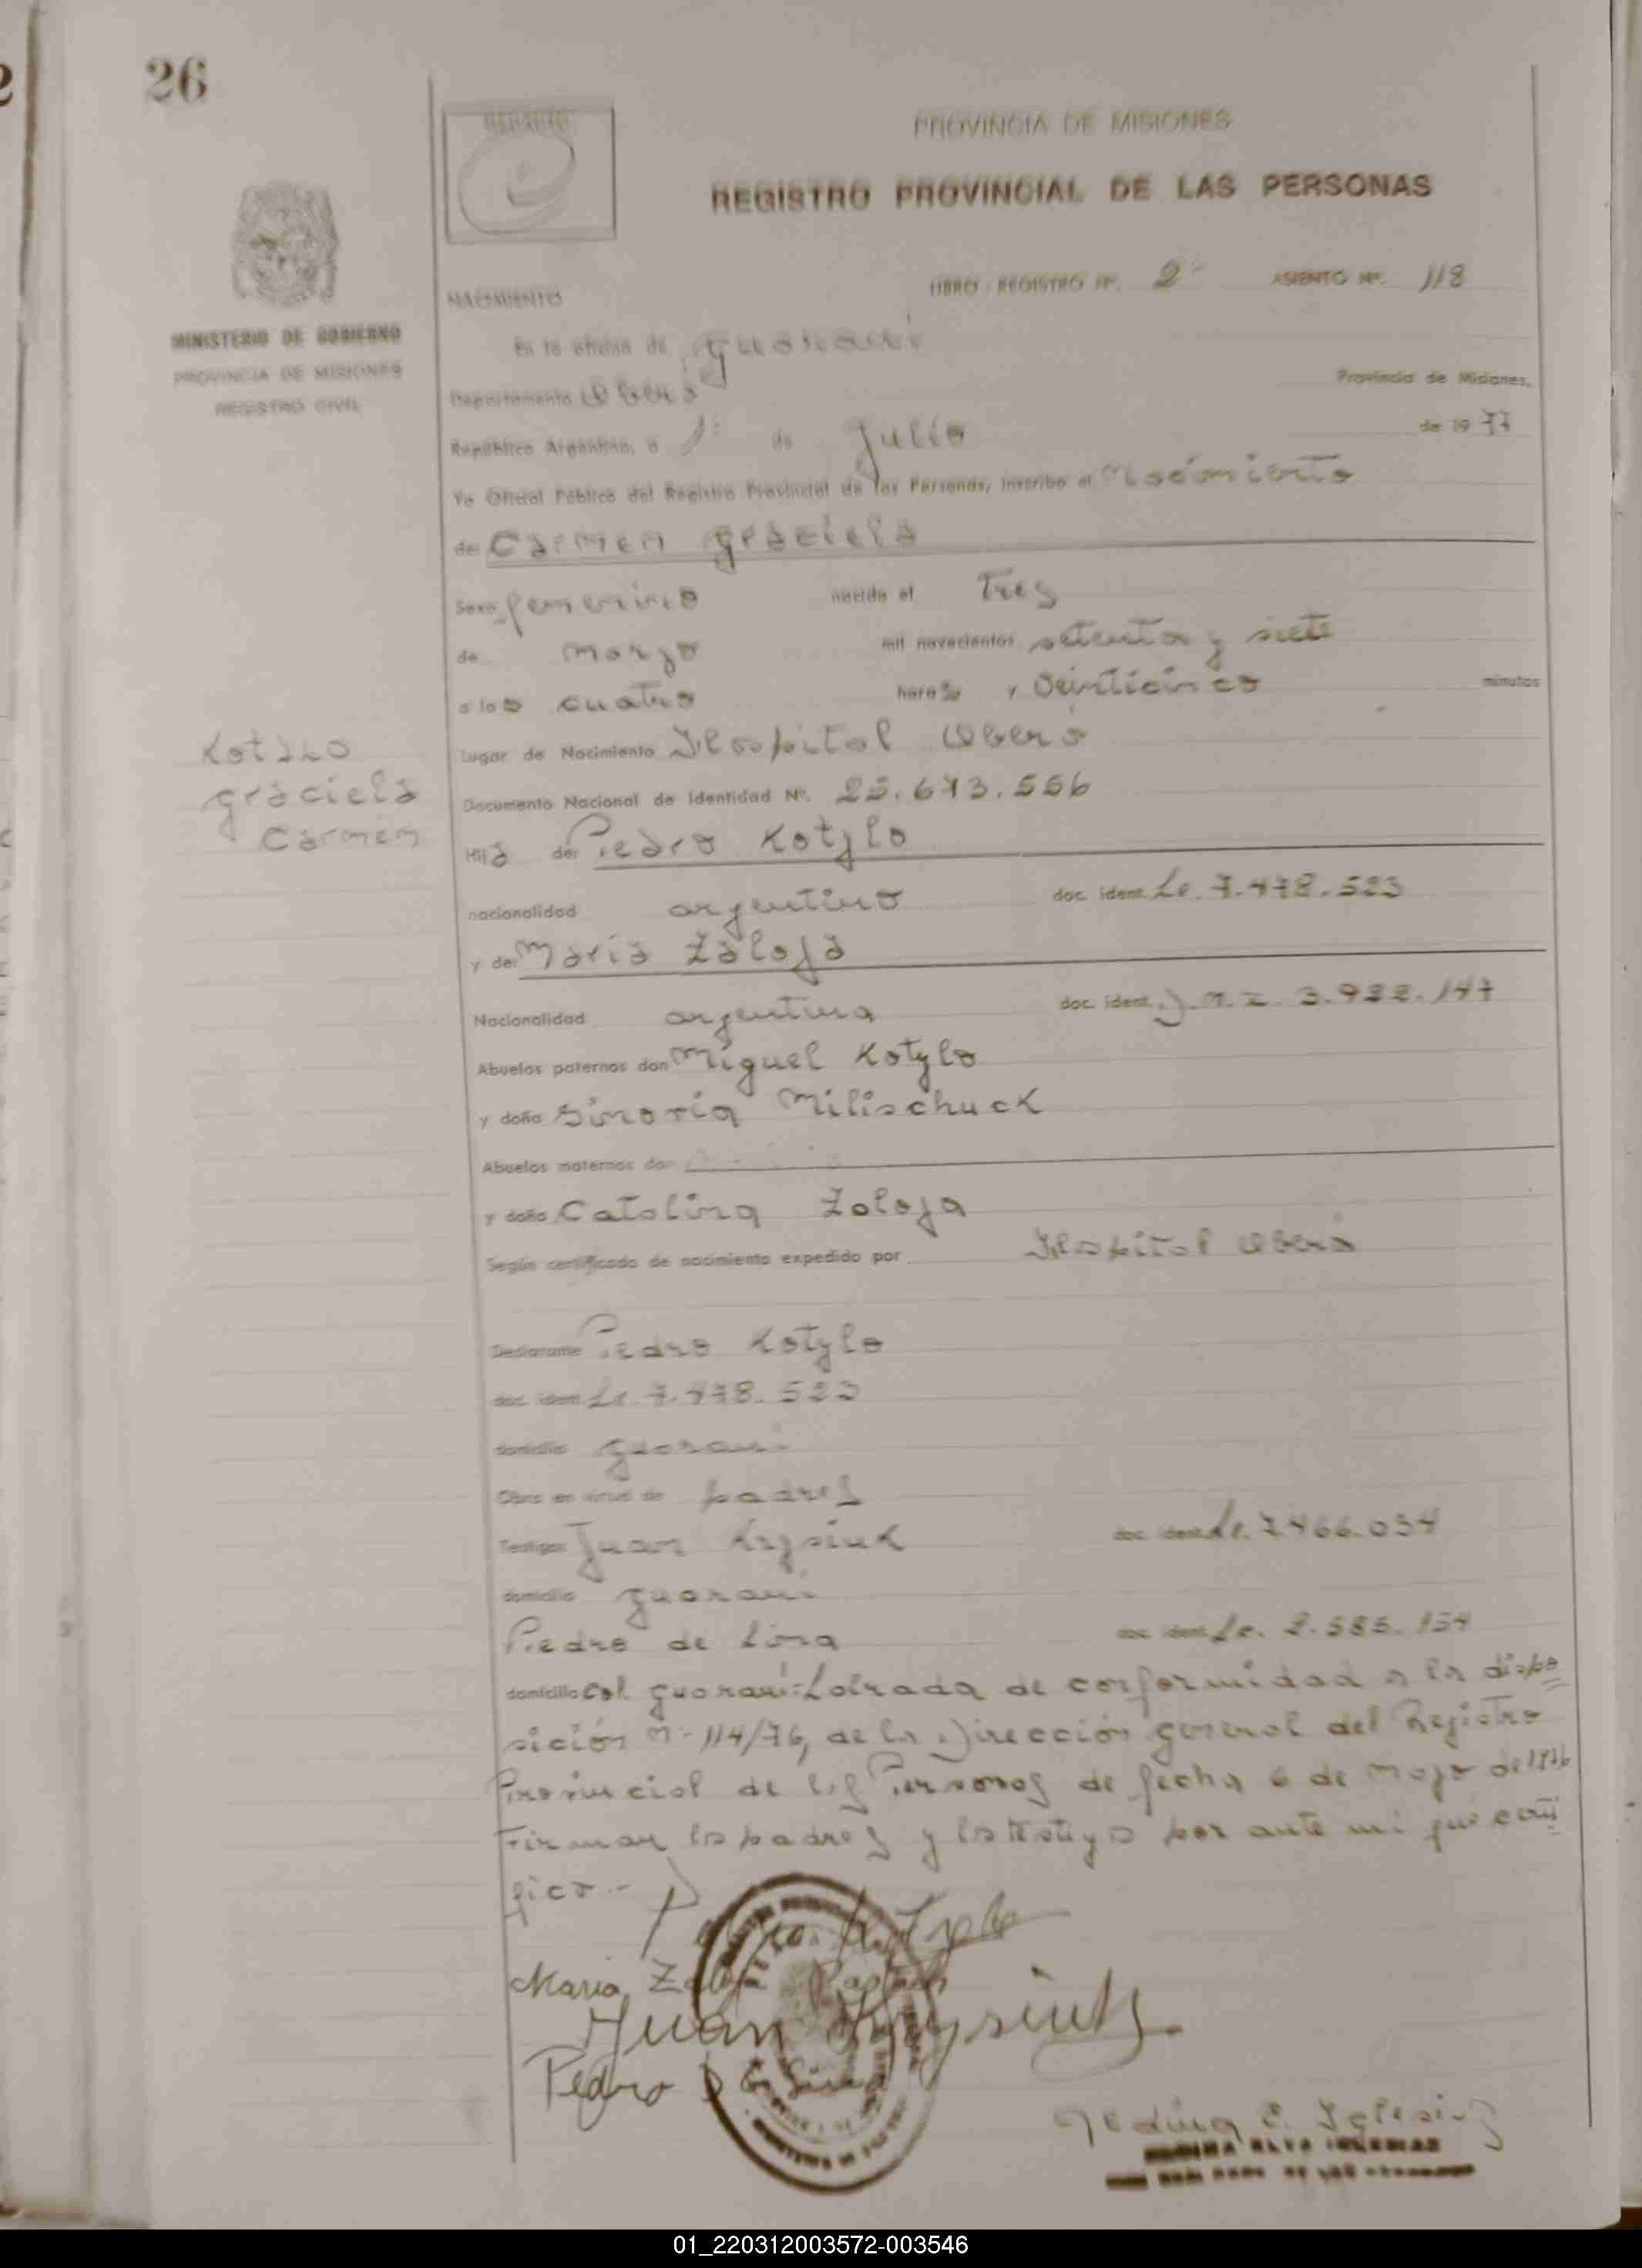 26
PROVINCIA DE MISIONES
REGISTRO PROVINCIAL DE LAS PERSONAS
MINISTERIO DE GOBIERNO
PROVINCIA DE MISIONES
REGISTRO CIVIL
LIBRO REGISTRO Nº. 2º ASIENTO Nº. 118
NACIMIENTO
En la oficina de Guaraní
Departamento Oberá Provincia de Misiones,
República Argentina, a 1º de Julio de 1977
Yo Oficial Público del Registro Provincial de las Personas, inscribo el Nacimiento
de: Carmen Graciela
Sexo femenino nacido el Tres
de marzo mil novecientos setenta y siete
a las cuatro horas y veinticinco minutos
Lugar de Nacimiento Hospital Oberá
Kotylo
Graciela
Carmen
Documento Nacional de Identidad Nº. 25.673.556
Hija de: Pedro Kotylo
nacionalidad argentino doc. ident. Le. 7.478.523
y de: Maria Zaloja
Nacionalidad argentina doc. ident. D.N.I. 3.922.147
Abuelos paternos don Miguel Kotylo
y doña Sinoria Milischuck
Abuelos maternos don
y doña Catalina Zaloja
Según certificado de nacimiento expedido por Hospital Oberá
Declarante Pedro Kotylo
doc. ident. Le. 7.478.523
domicilio Guaraní
Obra en virtud de padres
Testigos Juan Krysiuk doc. ident. Le. 7.466.034
domicilio Guaraní
Pedro de Lima doc. ident. Le. 2.585.154
domicilio Col. Guaraní= Labrada de conformidad a la dispo
sición Nº 114/76, de la Dirección general del Registro
Provincial de las Personas de fecha 6 de mayo de 1976
Firman los padres y los testigos por ante mí que certi
fico.-
Pedro Kotylo
Maria Zaloja
Juan Krysiuk
Pedro De Lima
Nedina E. Iglesias
01_220312003572-003546